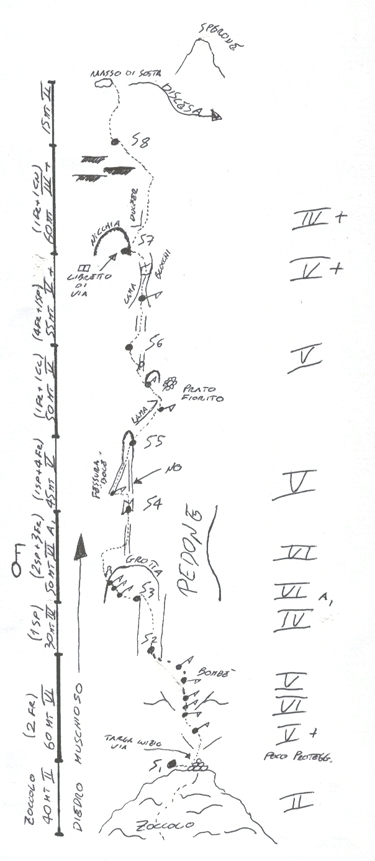 SPERONE
MASSO DI SOSTA
DISCESA
15 MT II
S8
60 MT III +
(1 FR + 1 CH)
DIEDRO
IV +
NICCHIA
S7
LIBRETTO
DI
VIA
LAMA
BLOCCHI
55 MT V +
(4 FR + 1 SP)
V +
S6
50 MT V
(1 FR + 1 CL)
V
PRATO
FIORITO
LAMA
S5
45 MT V
(1 SP + 4 FR)
FESSURA
NO
V
S4
50 MT VI A1
(2 SP + 3 FR)
VI
PEDONE
GROTTA
VI A1
S3
30 MT IV
(1 SP)
IV
S2
BOMBÉ
V
60 MT VI
(2 FR)
VI
DIEDRO MUSCHIOSO
V +
POCO PROTEGG.
TARGA INIZIO
VIA
S1
ZOCCOLO
40 MT II
II
ZOCCOLO